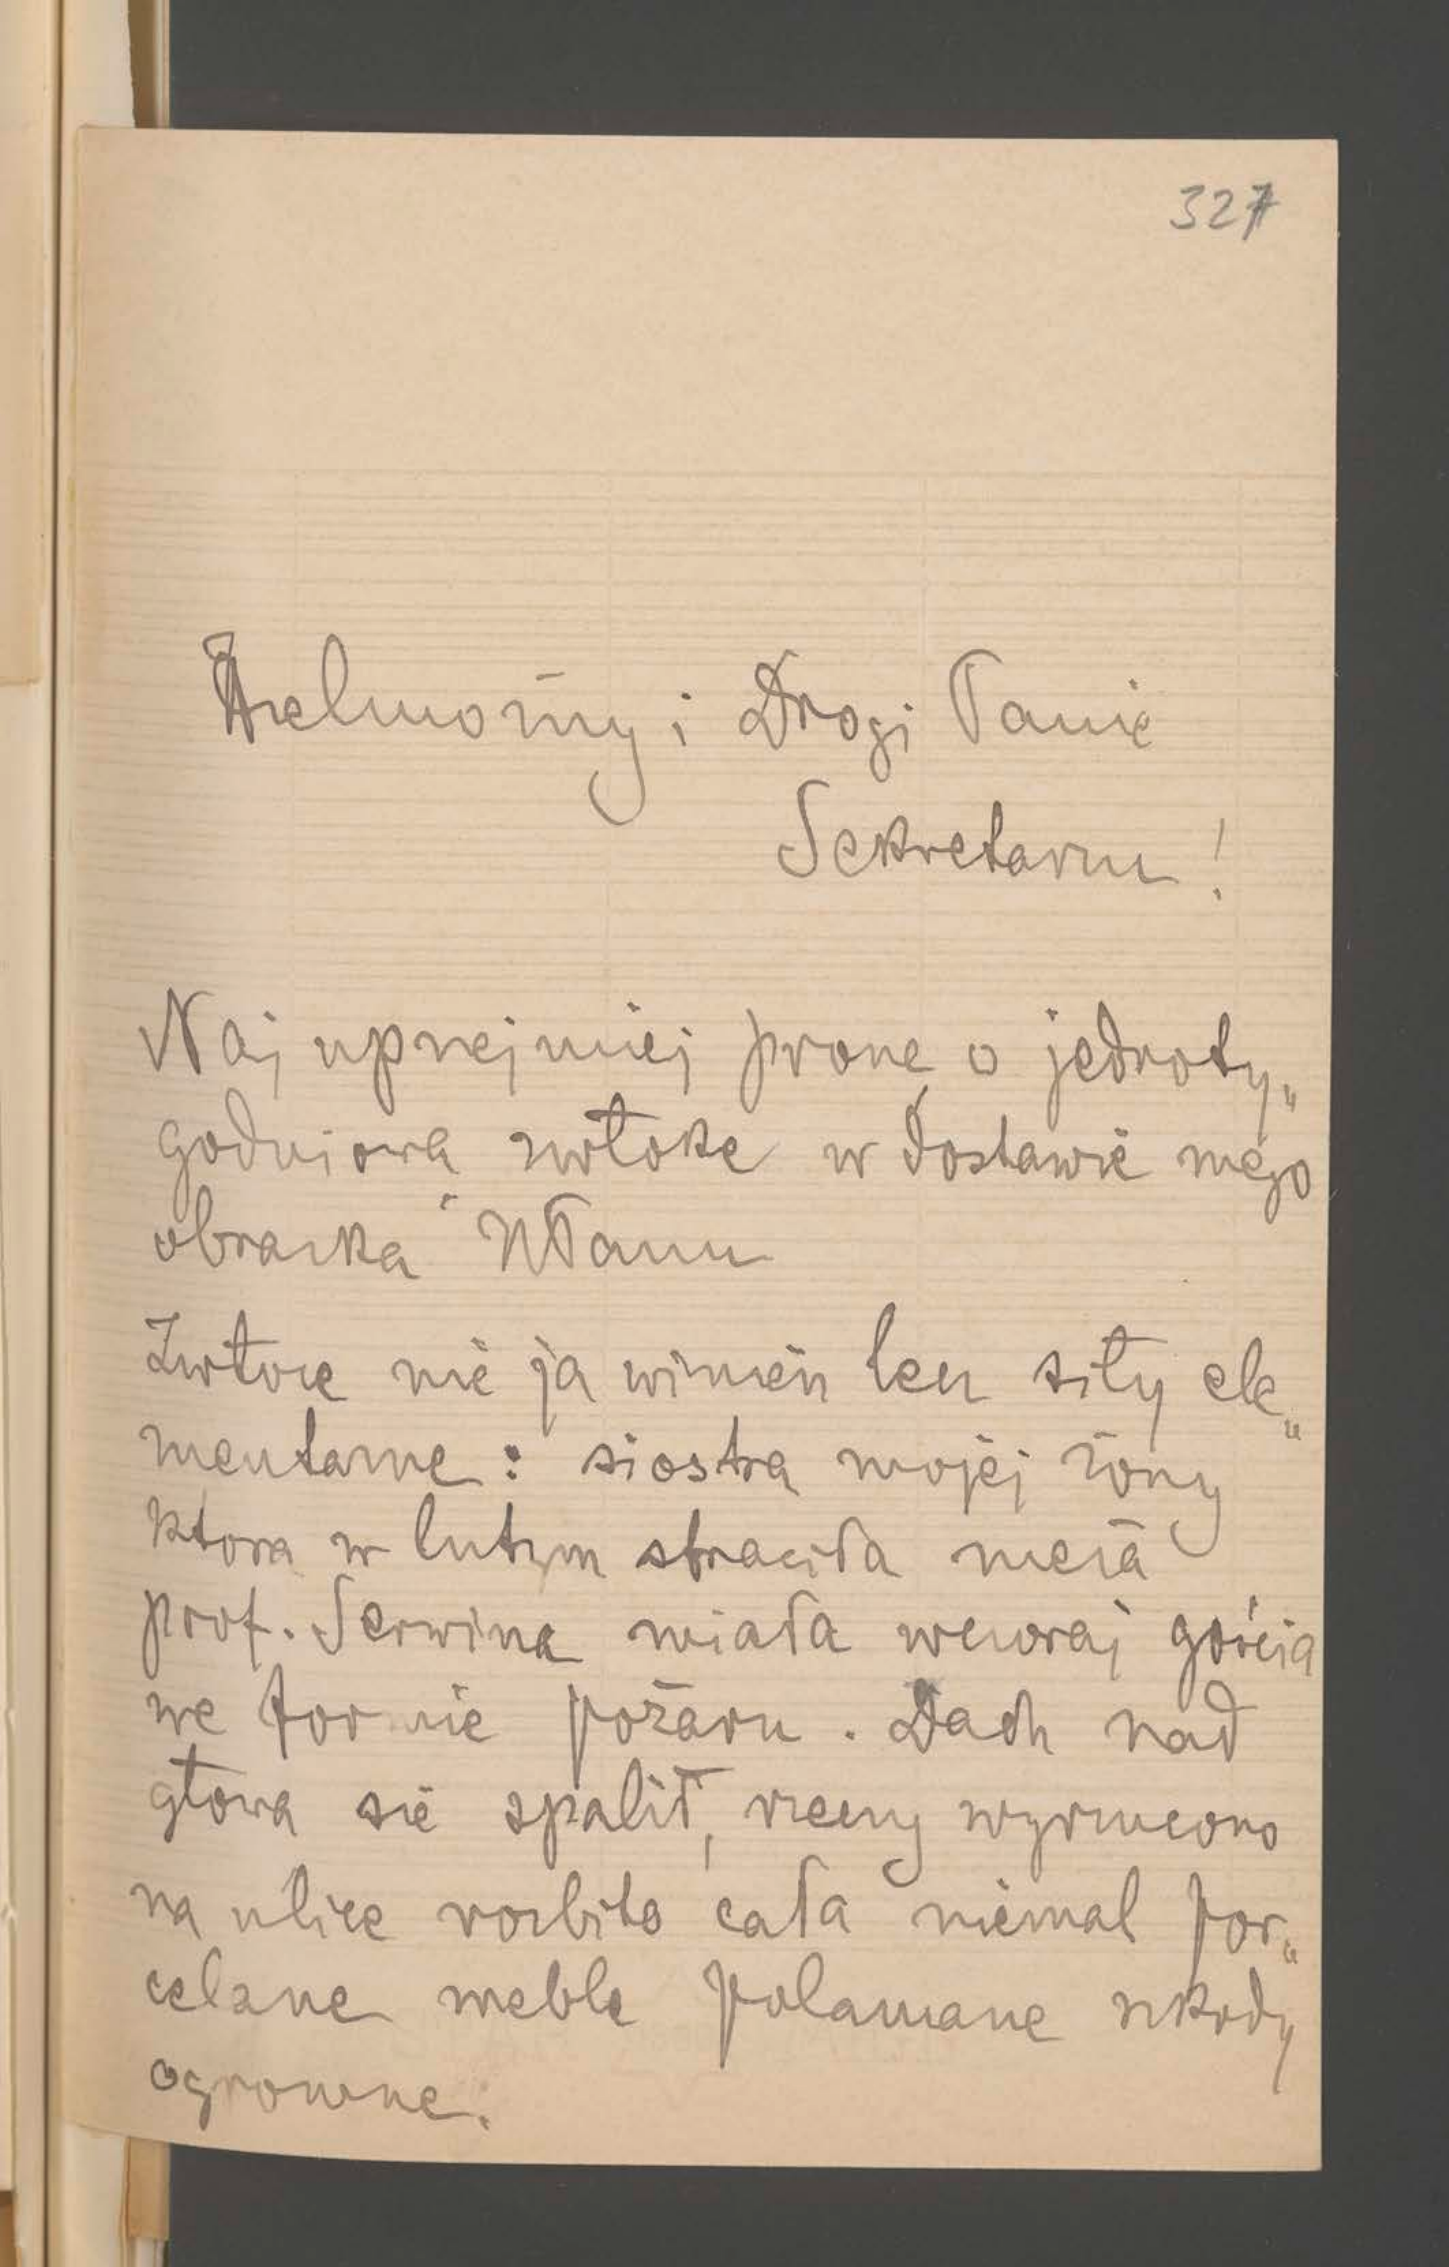 327
Wielmożny i Drogi Panie
Sekretarzu!
Najuprzejmiej proszę o jednoty„
godniową zwłokę w dostawie mego
obrazka WPanu
Zwłoce nie ja winien lecz siły ele„
mentarne: siostra mojej żony
która w lutym straciła męża
prof. Serwina miała wczoraj gościa
we formie pożaru. Dach nad
głową się spalił, rzeczy wyrzucono
na ulicę rozbito całą niemal por„
celanę meble połamane szkody
ogromne.